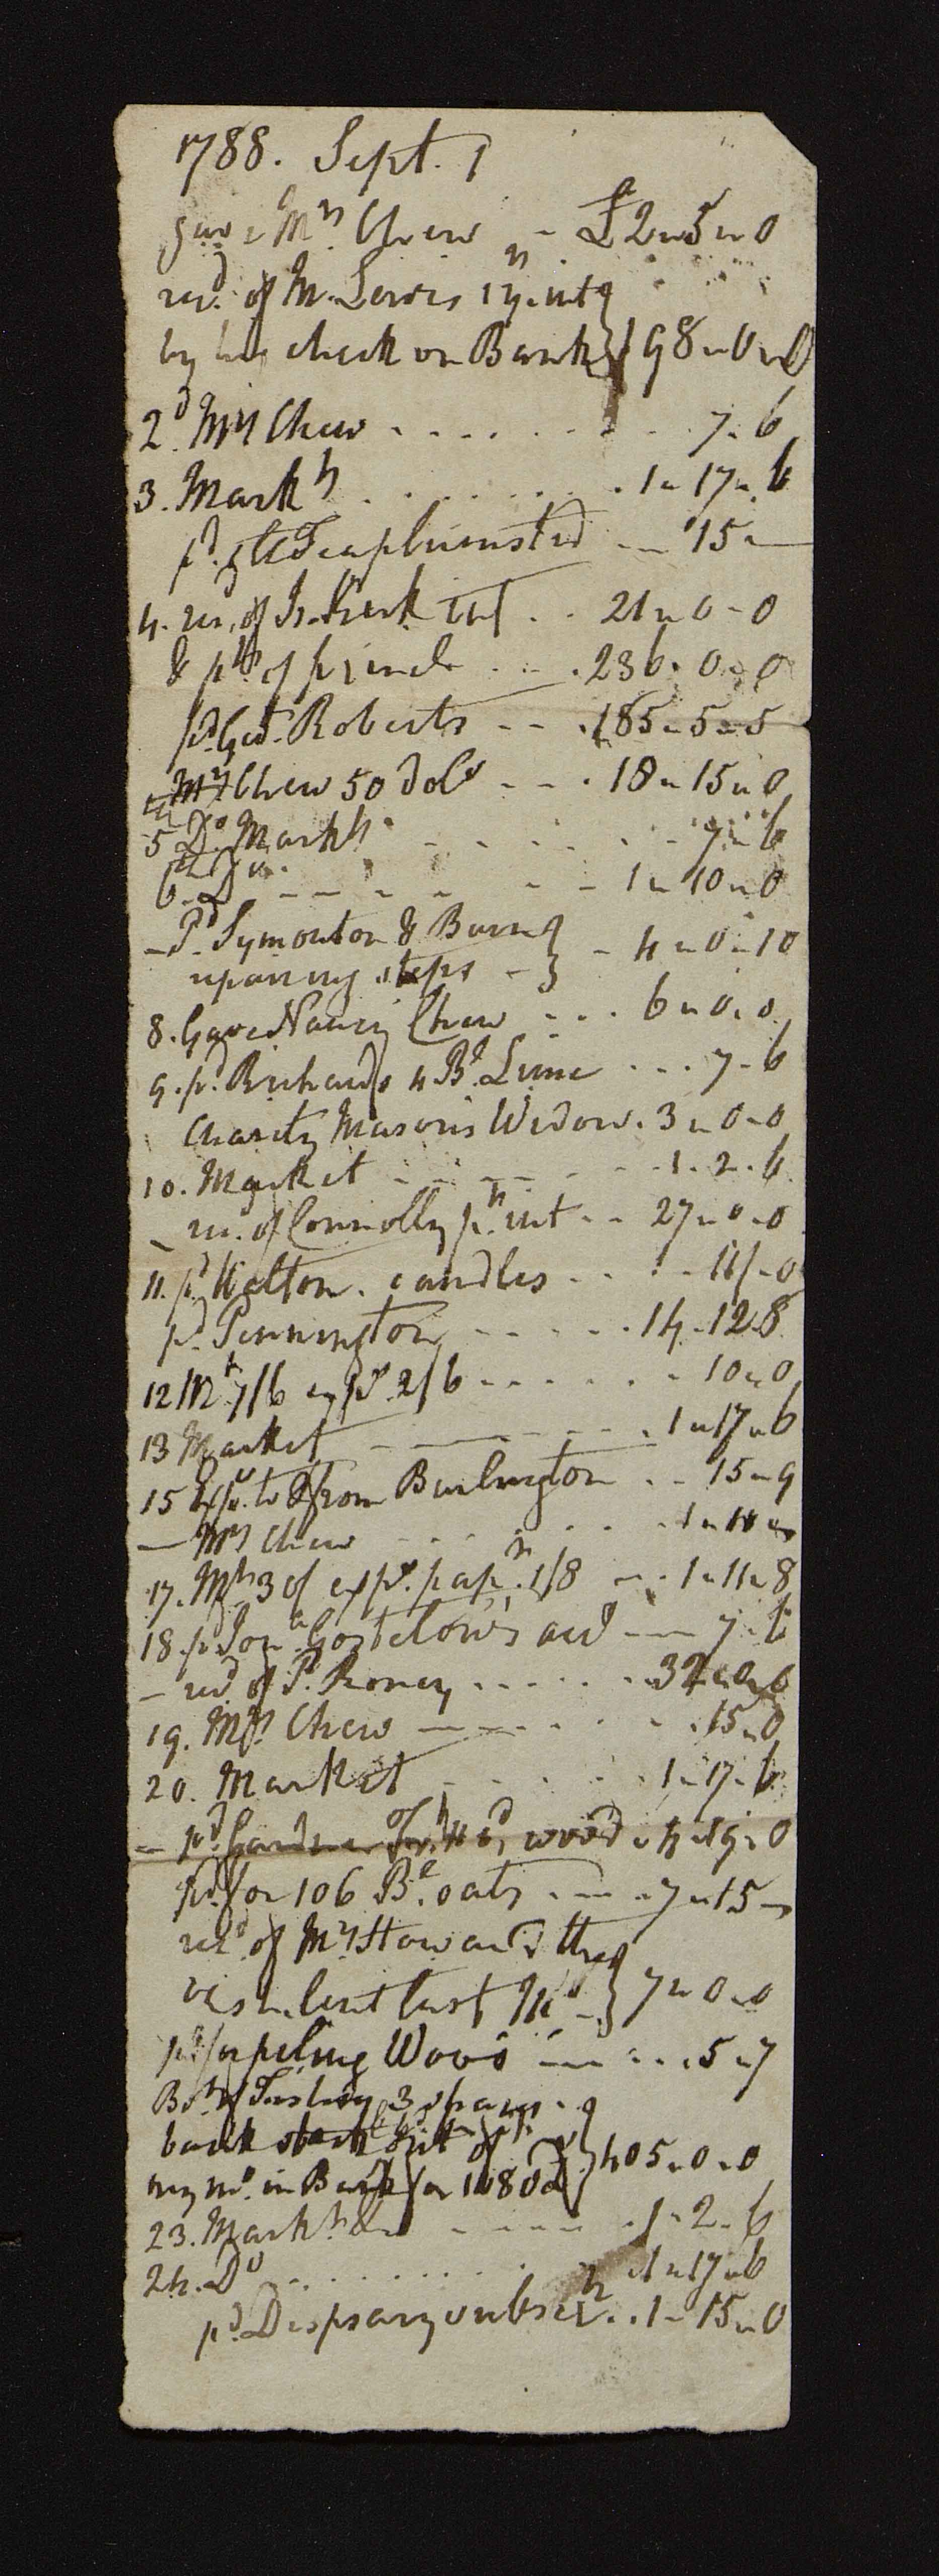 1788. Sept. 1
gave Mrs. Chew - £2„5„0
recd. of M. Lewis 1 y. int
by his check on Bank } 198„0„0
2d. Mrs Chew . . . . 7. 6
3. Markt . . . . 1„17„6
pd. Plumsted — 15„—
4. recd. of Is. Kirk int . . 21„0-0
& pt. of princl. . . . 236. 0. 0
pd. Geo. Roberts - - . 185„5„5
Mrs Chew 50 dolrs - - . 18„15„0
5 Do. Markt . . . . 7„6
6. Do. - - - - 1„10„0
- Pd. Symonton & Burn
repairing steps - } - 4„0„10
8. Gave Nancy Chew - - . 6„0„0
9. pd. Richards 4 Bl. Lime . . . 7-6
Charity Mason's Widow. 3„0-0
10. Market - - - - 1. 2. 6
- recd. of Connolly pn. int - - 27„0„0
11. pd. Welton. candles - - - - 11/-0
pd. Pennington - - - - . 14-12-8
12 Mt. 7/6 exps. 2/6 - - - - 10„0
13 Market - - - . 1„17„6
15 Exps. to & from Burlington . . 15„9
— Mrs Chew - - - - 1„10„
17. Mt. 30/ exps. pap. 1/8 - - 1„11„8
18. pd. Jona. Gostelow's acct — 7. 6
- recd. of P. Roney . . . . . 32„0„6
19. Mrs. Chew — - . . . 15„0
20. Market . . . . 1-17-6
- pd. Gardner wood 4„19„0
pd. for 106 Bl. oats . — „7„15„
recd. of Mr Howard the
cash lent last } 7„0„0
pd. for peling Wood — . . . 5„7
3
back
my in Bank for 1080 } 405„0„0
23. Markt . . . . 1-2-6
24. Do . . . . . . 1„17„6
pd. Despsary subscn. . . 1-15„0